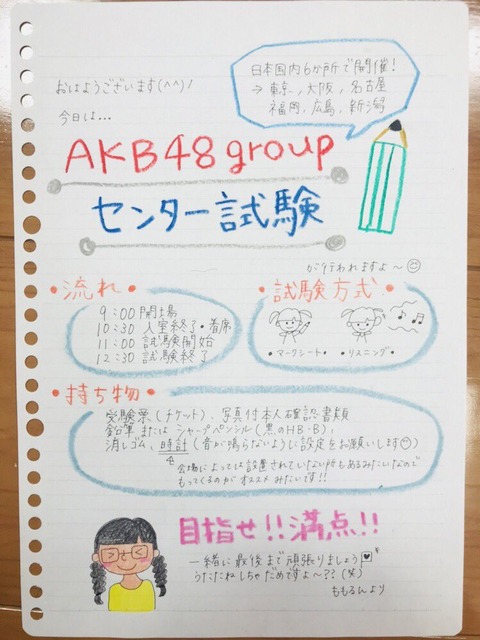 おはようございます(^^)!
今日は…
日本国内6か所で開催!
→東京,大阪,名古屋
福岡,広島,新潟
AKB48group
センター試験
が行われますよ〜☺
•流れ•
9:00開場
10:30 入室終了・着席
11:00 試験開始
12:30 試験終了
•試験方式•
•マークシート• •リスニング•
•持ち物•
受験票(チケット)、写真付本人確認書類
鉛筆またはシャープペンシル(黒のHB・B)、
消しゴム、時計(音が鳴らないように設定をお願いします☺)
会場によっては設置されていない所もあるみたいなので
もってくるのがオススメみたいです!!
目指せ!!満点!!
一緒に最後まで頑張りましょう
うたたねしちゃだめですよ〜??(笑)
ももるんより